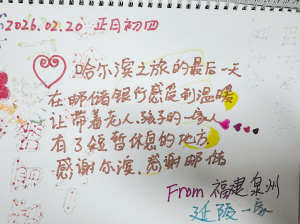 2026.02.20 正月初四
哈尔滨之旅的最后一天
在邮储银行感受到温暖
让带着老人、孩子的一家人
有了短暂休息的地方
感谢尔滨、感谢邮储
From 福建泉州
延陵一家